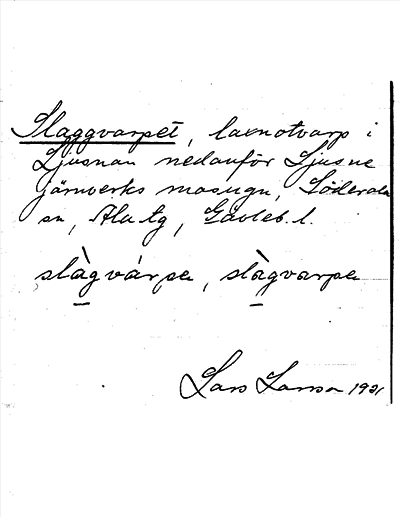 Slaggvarpet, laxnotvarp i
Ljusnan nedanför Ljusne
järnverks masugn, Söderala
sn, Ala tg, Gävleb. l.
slàgvárpa, slàgvarpa
Lars Larson 1921